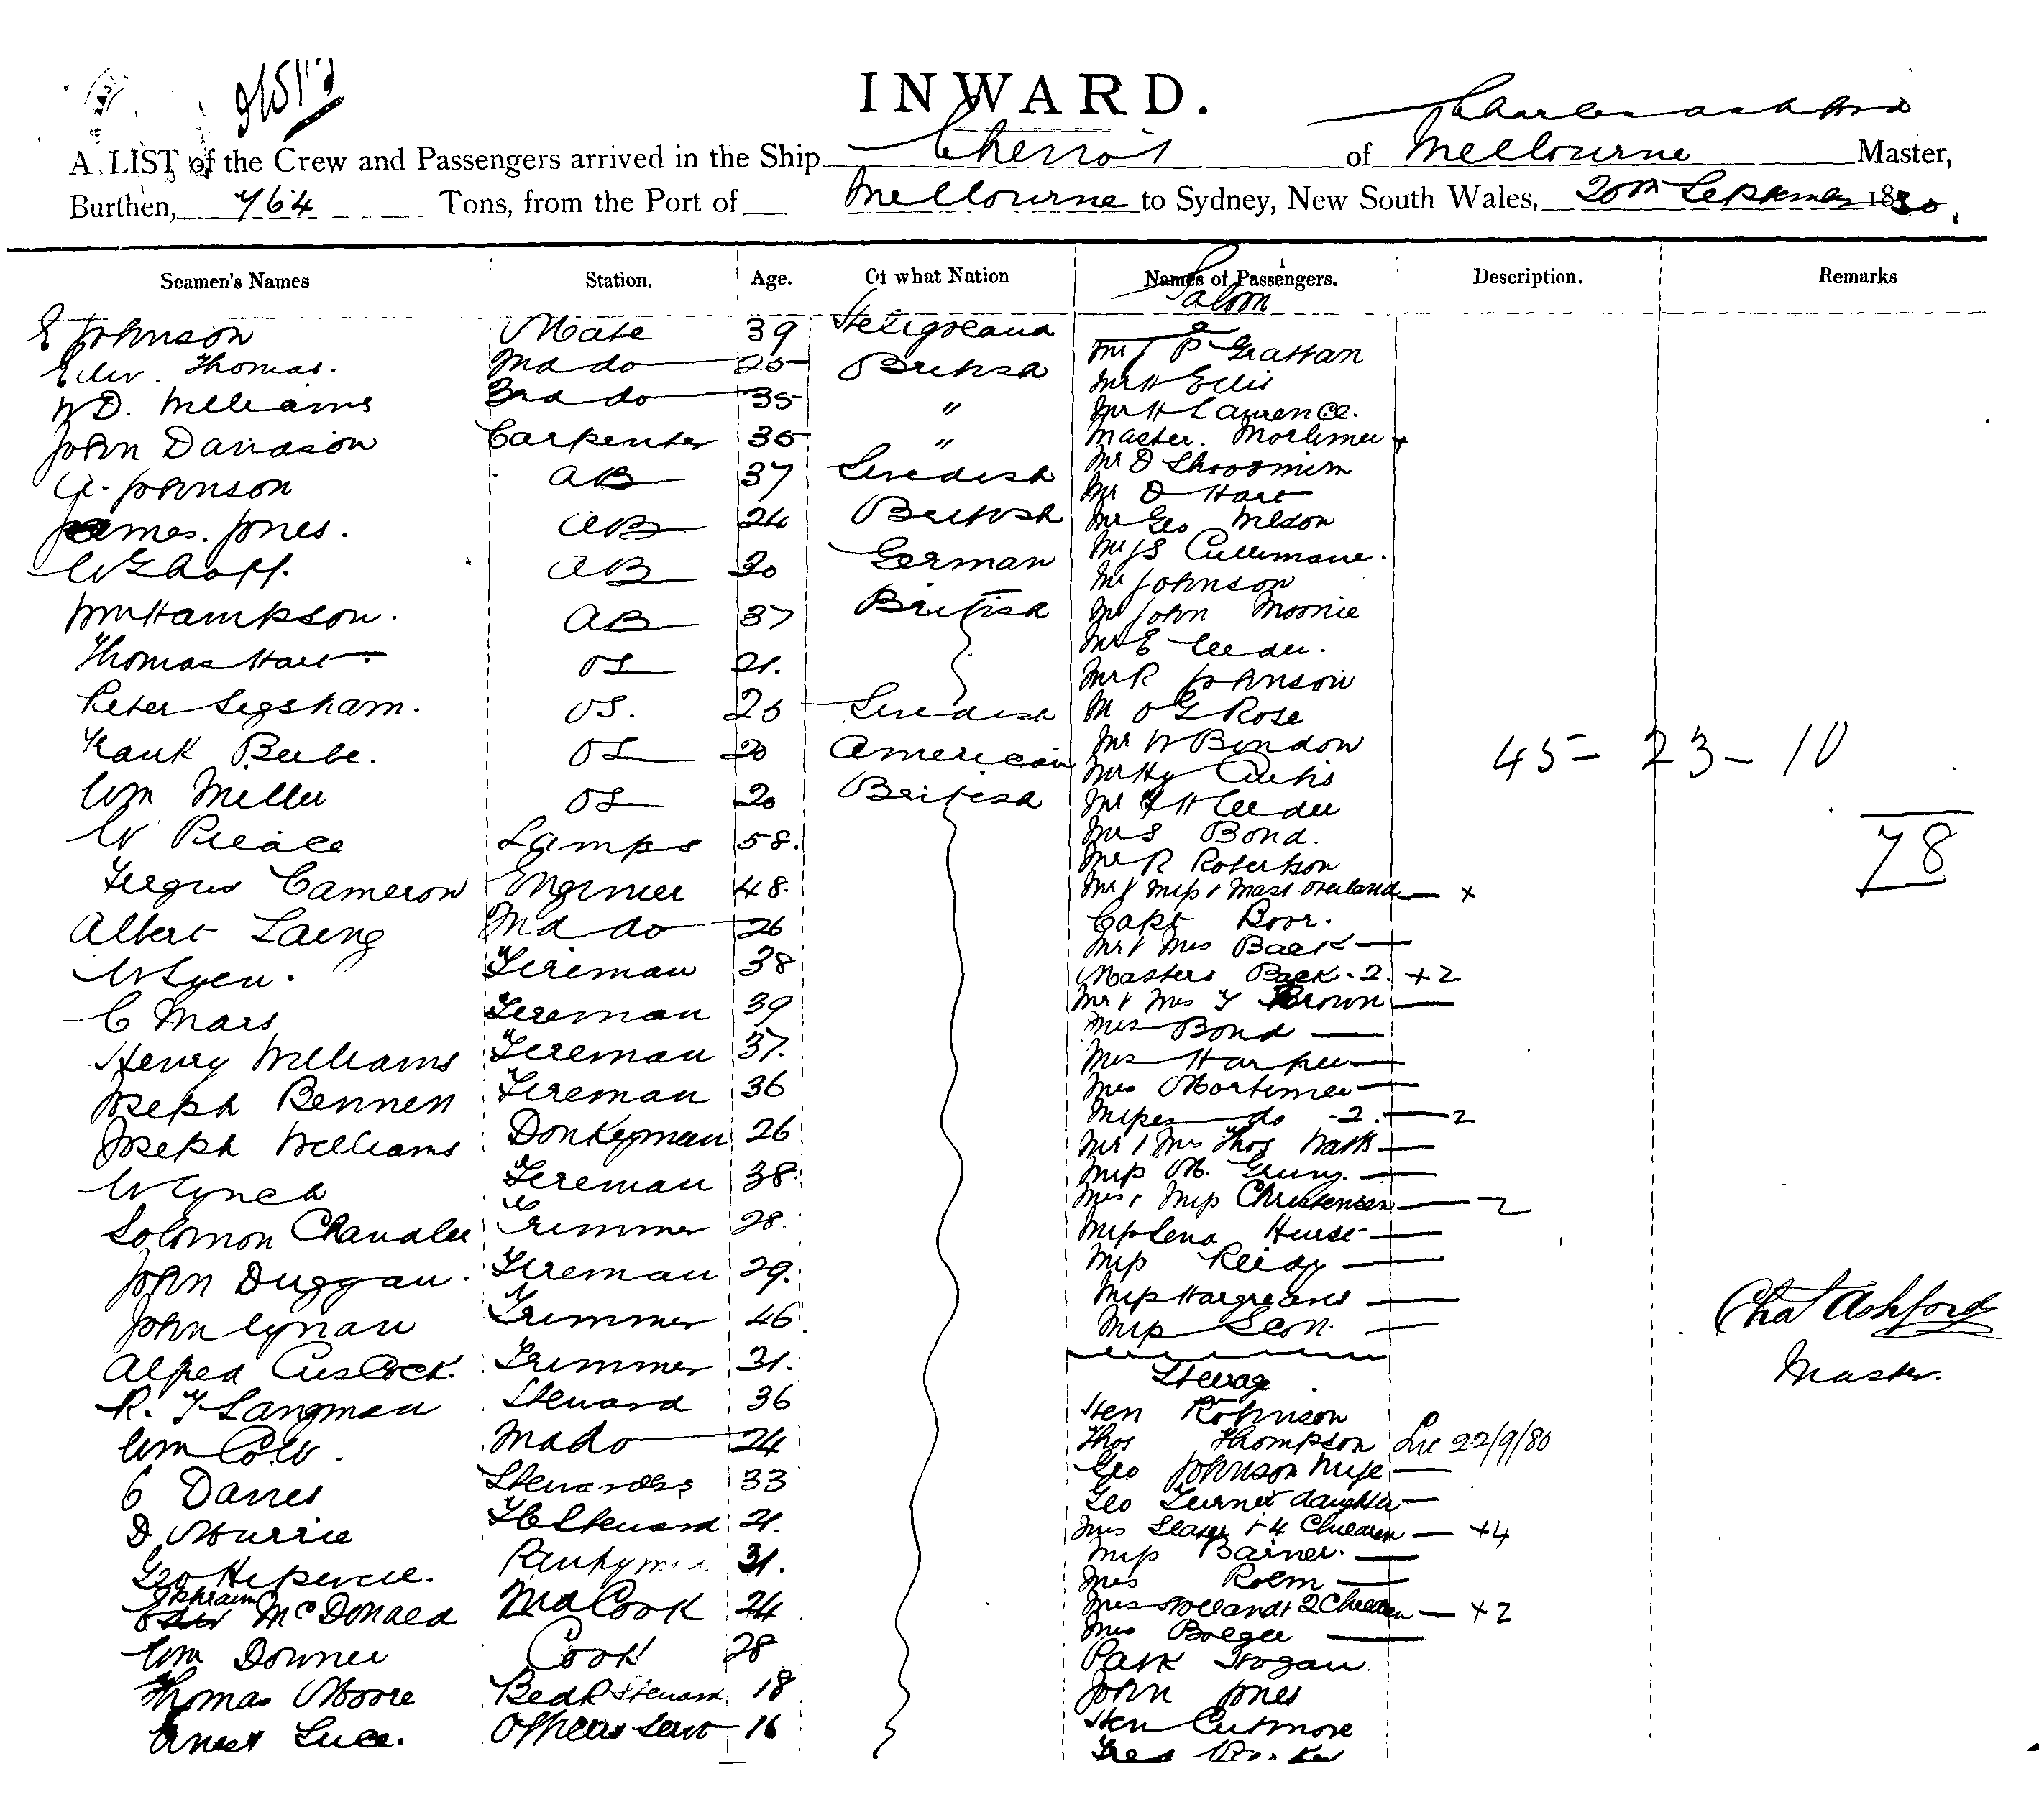 INWARD.
Charles Ashford
A LIST of the Crew and Passengers arrived in the Ship Cheviot of Melbourne Master,
Burthen, 764 Tons, from the Port of Melbourne to Sydney, New South Wales, 20th September 1880.
Seamen's Names Station. Age. Of what Nation Names of Passengers. Description. Remarks
Saloon
E Johnson Mate 39 Heligoland
Mr J P Grattan
Edw. Thomas. 2nd do 25 British
Mr H Ellis
W D. Williams 3rd do 35 "
Mr H Lawrence.
John Davidson Carpenter 35 "
Master. Mortimer +
A. Johnson AB 37 Swedish
Mr D
Mr D Hart
James. Jones. AB 24 British
Mr Geo Wilson
AB 30 German
Mr J S Cullimane.
Mr Johnson
Wm Hampson. AB 37 British
Mr John Moonie
Thomas Hart. OS 21.
Mr E
Mr R Johnson
Peter Segsham. OS. 25 Swedish
M O G Rose
Frank Beebe. OS 20 American
Mr W Bindon
45 - 23 - 10
Mr Hy Curtis
Wm Miller OS 20 British
Mr H
78
W Pierce Lamps 58.
Mr S Bond.
Mr R Robertson
Fergus Cameron Engineer 48.
Mr & Miss & Mast Overland — +
Albert Laing 2nd do 26
Capt Boor.
Mr & Mrs Back —
W Lyen. Fireman 38
Masters Back - 2. +2
C Mars Fireman 39
Mr & Mrs F Brown —
Mrs Bond —
Henry Williams Fireman 37.
Mrs Harper —
Joseph Bennett Fireman 36
Mrs Mortimer —
Misses do - 2. — 2
Joseph Williams Donkeyman 26
Mr & Mrs Thos Watts —
W Lynch Fireman 38.
Miss M. —
Mrs & Miss Christensen — 2
Solomon Chandler Trimmer 28.
Miss Lena Hurst —
John Duggan. Fireman 29.
Miss Reidy —
Miss Hargreaves —
John Lynan Trimmer 46
Miss Leon. —
Chas Ashford
Master.
Alfred Cusdock. Trimmer 31.
Steerage
R. F Langman Steward 36
Hen Robinson
Wm Cole. 2nd do 24
Thos Thompson Lie 22/9/80
Geo Johnson Wife —
C Davies Stewardess 33
Geo Turner daughter —
D Murrie FC Steward 21.
Mrs Slater & 4 Children — +4
Geo Hepercele. Pantryman 31.
Miss Barner. —
Mrs Rolm —
Ephraim McDonald 2nd Cook 24
Mrs Holland & 2 Children — +2
Mrs Bolger —
Wm Downer Cook 28
Patk Hogan
Thomas Moore Bedr Steward 18
John Jones
Hen Cutmore
Ernest Luce. Officers Servt 16
Fred